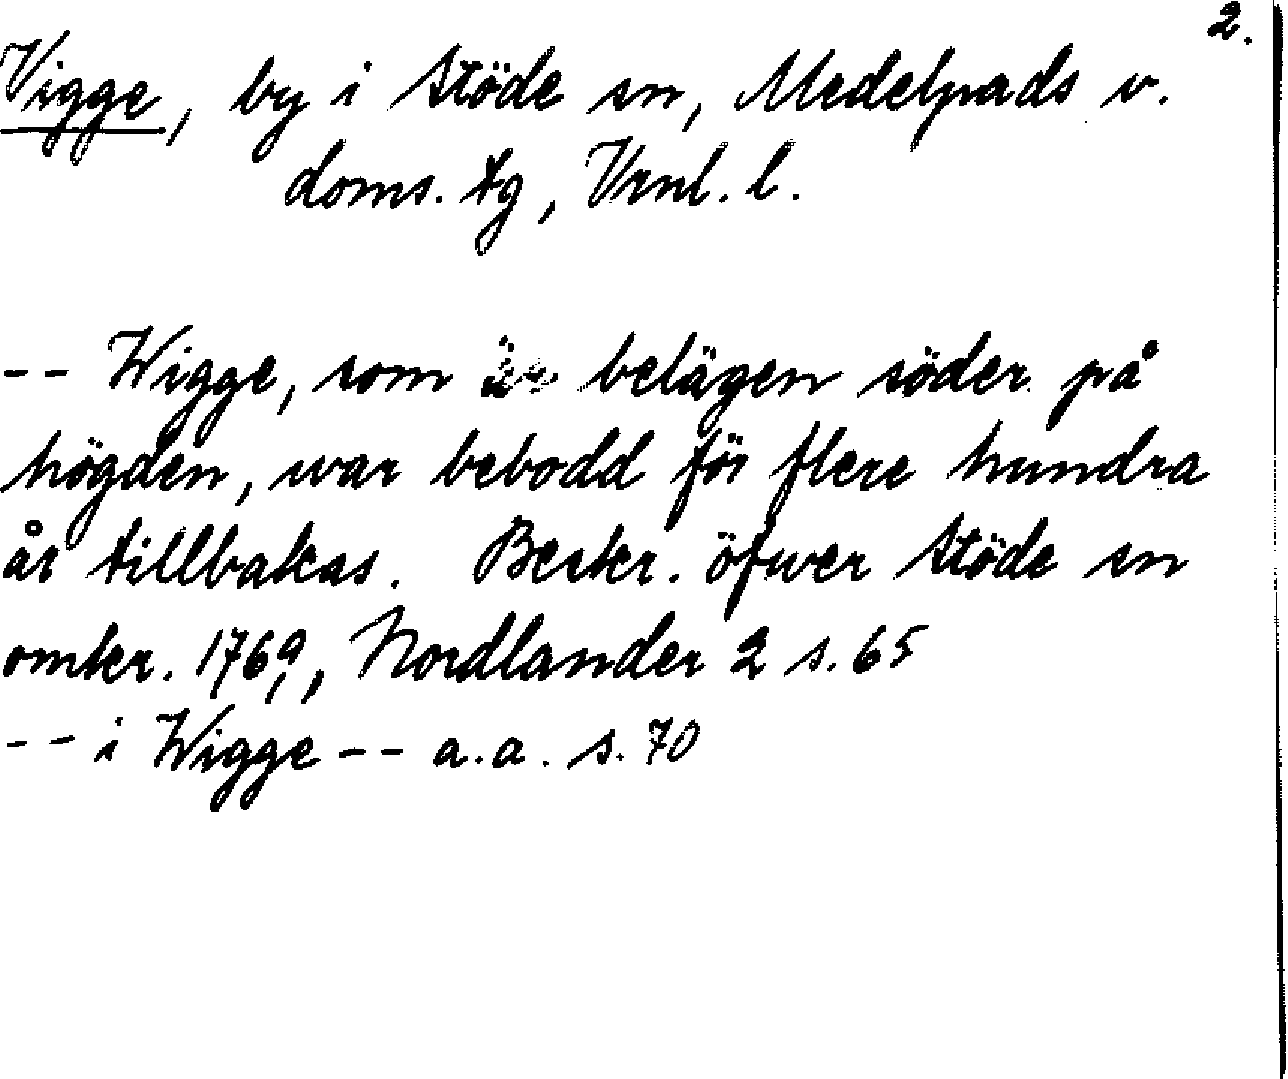 2.
Vigge, by i Stöde sn, Medelpads v.
doms. tg, Vrnl. l.
-- Wigge, som är belägen söder på
högden, war bebodd för flere hundra
år tillbakas. Beskr. öfwer Stöde sn
omkr. 1769, Nordlander 2 s. 65
-- i Wigge -- a. a. s. 70